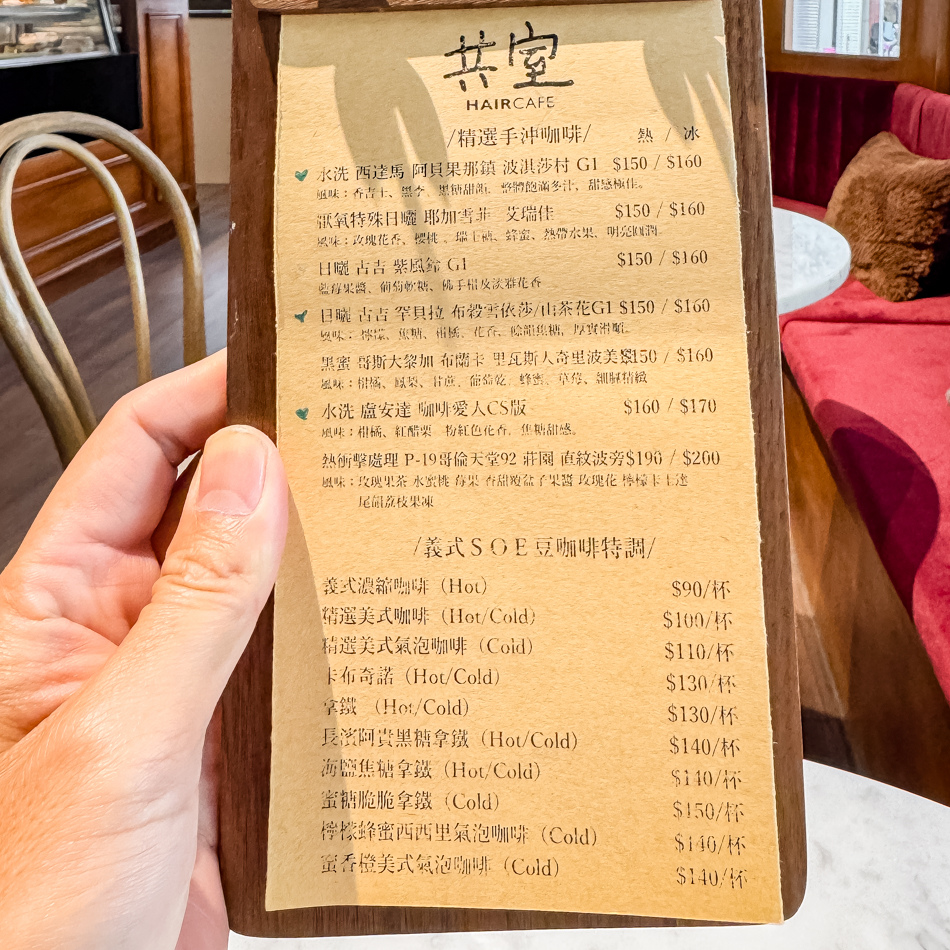 共室
HAIRCAFE
/精選手沖咖啡/ 熱 / 冰
水洗 西達馬 阿貝果那鎮 波淇莎村 G1 $150 / $160
風味：香吉士、黑李、黑糖甜韻、整體飽滿多汁、甜感極佳。
厭氧特殊日曬 耶加雪菲 艾瑞佳 $150 / $160
風味：玫瑰花香、櫻桃、瑞士糖、蜂蜜、熱帶水果、明亮圓潤
日曬 古吉 紫風鈴 G1 $150 / $160
藍莓果醬、葡萄軟糖、佛手柑及淡雅花香
日曬 古吉 罕貝拉 布穀雪依莎/山茶花G1 $150 / $160
風味：檸檬、焦糖、柑橘、花香、餘韻焦糖，厚實滑順。
黑蜜 哥斯大黎加 布蘭卡 里瓦斯人奇里波美 $150 / $160
風味：柑橘、鳳梨、甘蔗、葡萄乾、蜂蜜、草莓、細膩精緻
水洗 盧安達 咖啡愛人CS版 $160 / $170
風味：柑橘、紅醋栗 粉紅色花香，焦糖甜感。
熱衝擊處理 P-19哥倫天堂92 莊園 直紋波旁$190 / $200
風味：玫瑰果茶 水蜜桃 莓果 香甜覆盆子果醬 玫瑰花 檸檬卡士達
尾韻荔枝果凍
/義式SOE豆咖啡特調/
義式濃縮咖啡（Hot） $90/杯
精選美式咖啡（Hot/Cold） $100/杯
精選美式氣泡咖啡（Cold） $110/杯
卡布奇諾（Hot/Cold） $130/杯
拿鐵 （Hot/Cold） $130/杯
長濱阿貴黑糖拿鐵（Hot/Cold） $140/杯
海鹽焦糖拿鐵（Hot/Cold） $140/杯
蜜糖脆脆拿鐵（Cold） $150/杯
檸檬蜂蜜西西里氣泡咖啡（Cold） $140/杯
蜜香橙美式氣泡咖啡（Cold） $140/杯